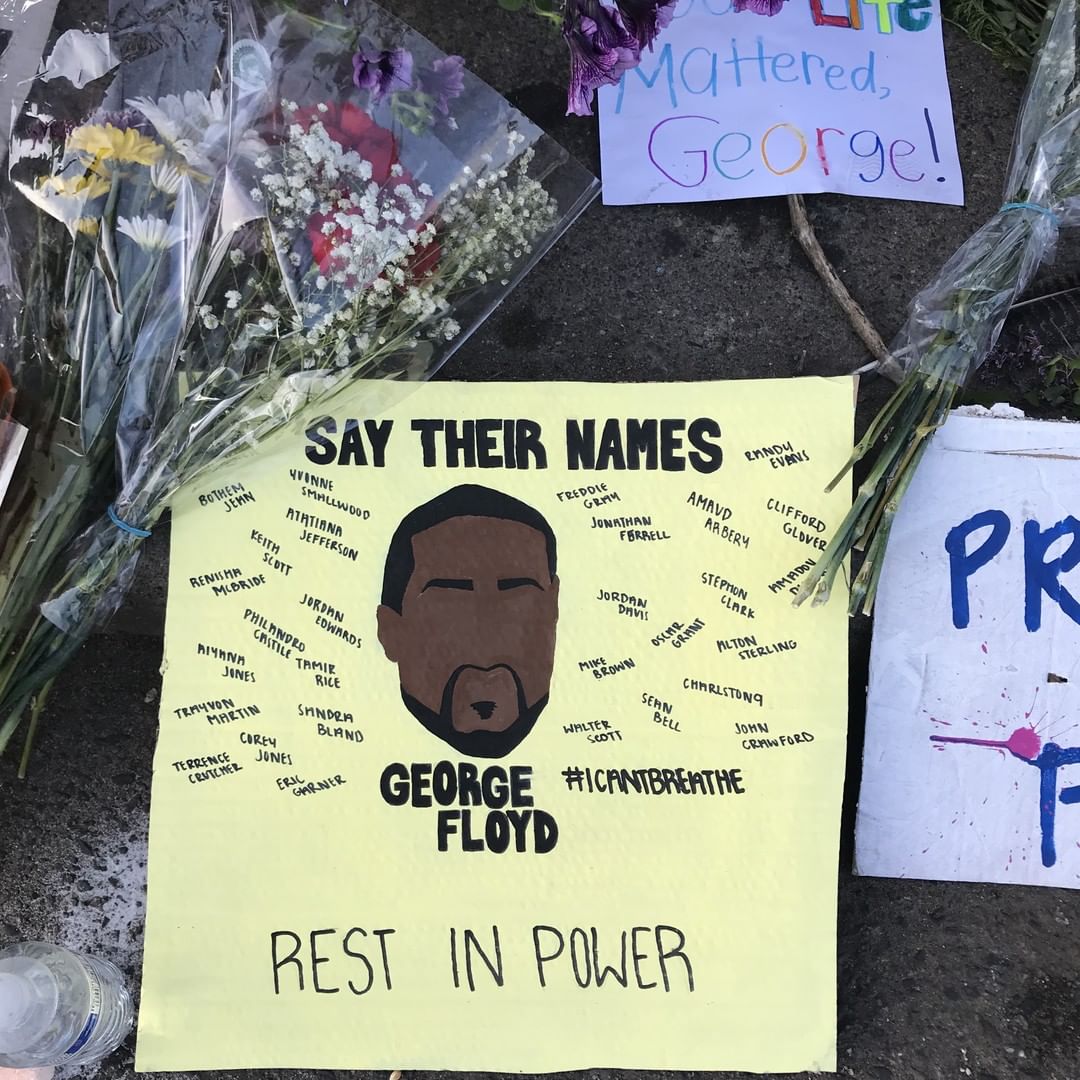 Life
Mattered,
George!
SAY THEIR NAMES
RANDY
EVANS
BOTHEM
JEAN
YVONNE
SMALLWOOD
ATATIANA
JEFFERSON
KEITH
SCOTT
RENISHA
MCBRIDE
JORDAN
EDWARDS
PHILANDRO
CASTILE
TAMIR
RICE
AIYANA
JONES
TRAYVON
MARTIN
SANDRA
BLAND
COREY
JONES
TERRENCE
CRUTCHER
ERIC
GARNER
FREDDIE
GRAY
JONATHAN
FERRELL
AMAUD
ARBERY
CLIFFORD
GLOVER
AMADOU
STEPHON
CLARK
JORDAN
DAVIS
OSCAR
GRANT
ALTON
STERLING
MIKE
BROWN
CHARLSTON9
SEAN
BELL
WALTER
SCOTT
JOHN
CRAWFORD
GEORGE
FLOYD
#ICANTBREATHE
REST IN POWER
PR